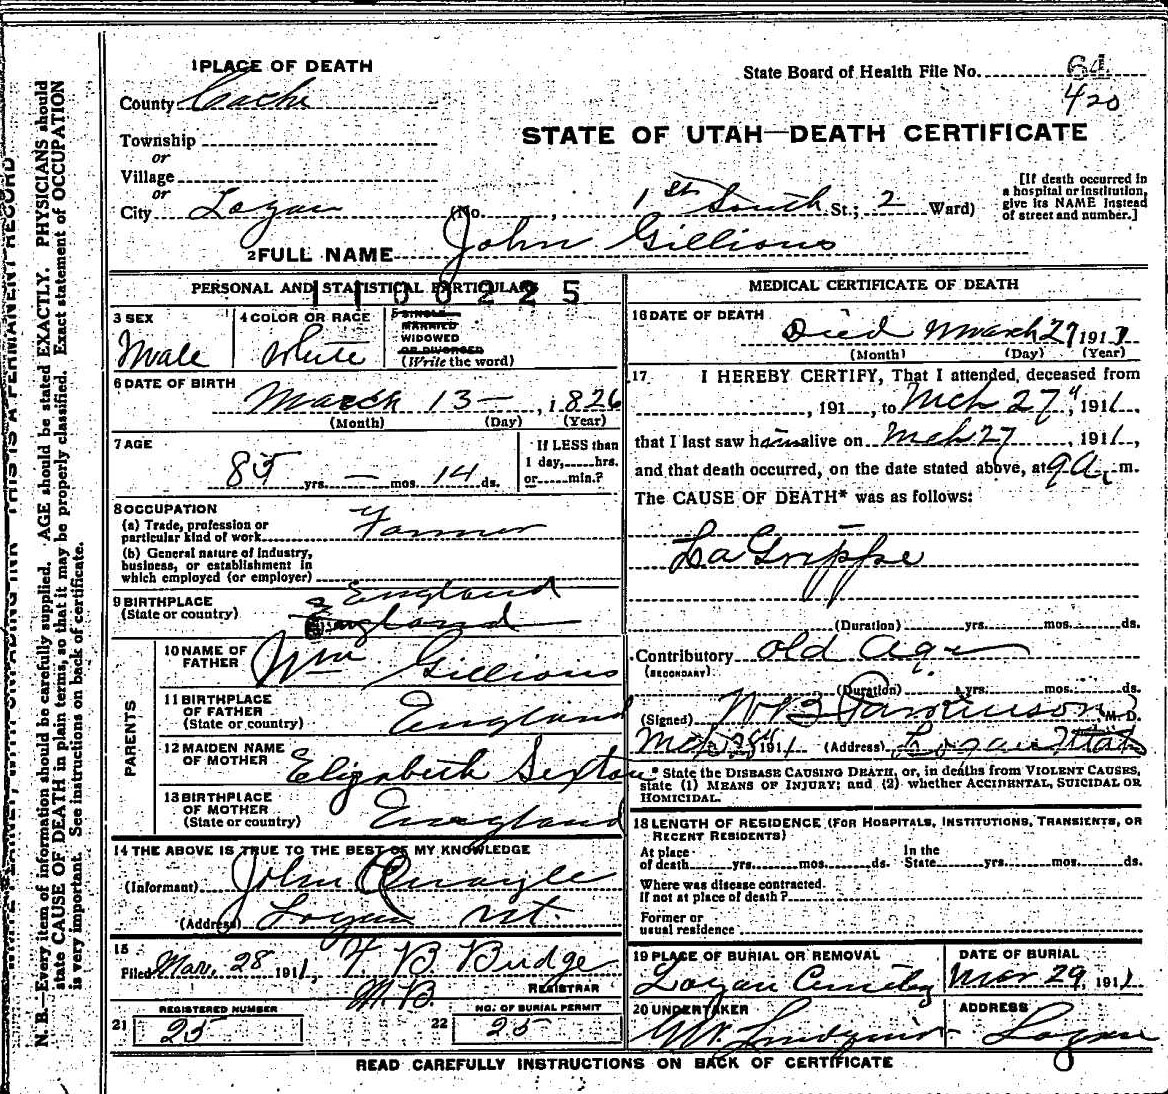 1 PLACE OF DEATH
State Board of Health File No. 64
420
County Cache
STATE OF UTAH—DEATH CERTIFICATE
Township
or
Village
or
City Logan (No. , 1st South St.; 2 Ward)
[If death occurred in
a hospital or institution,
give its NAME instead
of street and number.]
2 FULL NAME John Gillions
PERSONAL AND STATISTICAL PARTICULARS
1100225
3 SEX
Male
4 COLOR OR RACE
White
5 SINGLE
MARRIED
WIDOWED
OR DIVORCED
(Write the word)
6 DATE OF BIRTH
March 13 — , 1826
(Month) (Day) (Year)
7 AGE
85 yrs. — mos. 14 ds.
If LESS than
1 day, hrs.
or min.?
8 OCCUPATION
(a) Trade, profession or
particular kind of work Farmer
(b) General nature of industry,
business, or establishment in
which employed (or employer)
9 BIRTHPLACE
(State or country)
England
England
PARENTS
10 NAME OF
FATHER Wm Gillions
11 BIRTHPLACE
OF FATHER
(State or country) England
12 MAIDEN NAME
OF MOTHER Elizabeth Sexton
13 BIRTHPLACE
OF MOTHER
(State or country) England
14 THE ABOVE IS TRUE TO THE BEST OF MY KNOWLEDGE
(Informant) John Quayle
(Address) Logan Ut.
15
Filed Mar. 28 1911, B. Budge
REGISTRAR
21 REGISTERED NUMBER
25
22 NO. OF BURIAL PERMIT
25
MEDICAL CERTIFICATE OF DEATH
16 DATE OF DEATH
Died March 27 1911
(Month) (Day) (Year)
17 I HEREBY CERTIFY, That I attended deceased from
, 191 , to Mch 27", 1911,
that I last saw him alive on Mch 27 , 1911,
and that death occurred, on the date stated above, at 9 a. m.
The CAUSE OF DEATH* was as follows:
La Grippe
(Duration) yrs. mos. ds.
Contributory old Age
(SECONDARY)
(Duration) yrs. mos. ds.
(Signed) W B Parkinson M. D.
Mch 28" 1911 (Address) Logan Utah
* State the DISEASE CAUSING DEATH, or, in deaths from VIOLENT CAUSES,
state (1) MEANS OF INJURY; and (2) whether ACCIDENTAL, SUICIDAL OR
HOMICIDAL.
18 LENGTH OF RESIDENCE (FOR HOSPITALS, INSTITUTIONS, TRANSIENTS, OR
RECENT RESIDENTS)
At place
of death yrs. mos. ds.
In the
State yrs. mos. ds.
Where was disease contracted.
If not at place of death?
Former or
usual residence
19 PLACE OF BURIAL OR REMOVAL
Logan Cemetery
DATE OF BURIAL
Mar 29, 1911
20 UNDERTAKER
ADDRESS
Logan
READ CAREFULLY INSTRUCTIONS ON BACK OF CERTIFICATE
N. B.—Every item of information should be carefully supplied. AGE should be stated EXACTLY. PHYSICIANS should
state CAUSE OF DEATH in plain terms, so that it may be properly classified. Exact statement of OCCUPATION
is very important. See instructions on back of certificate.